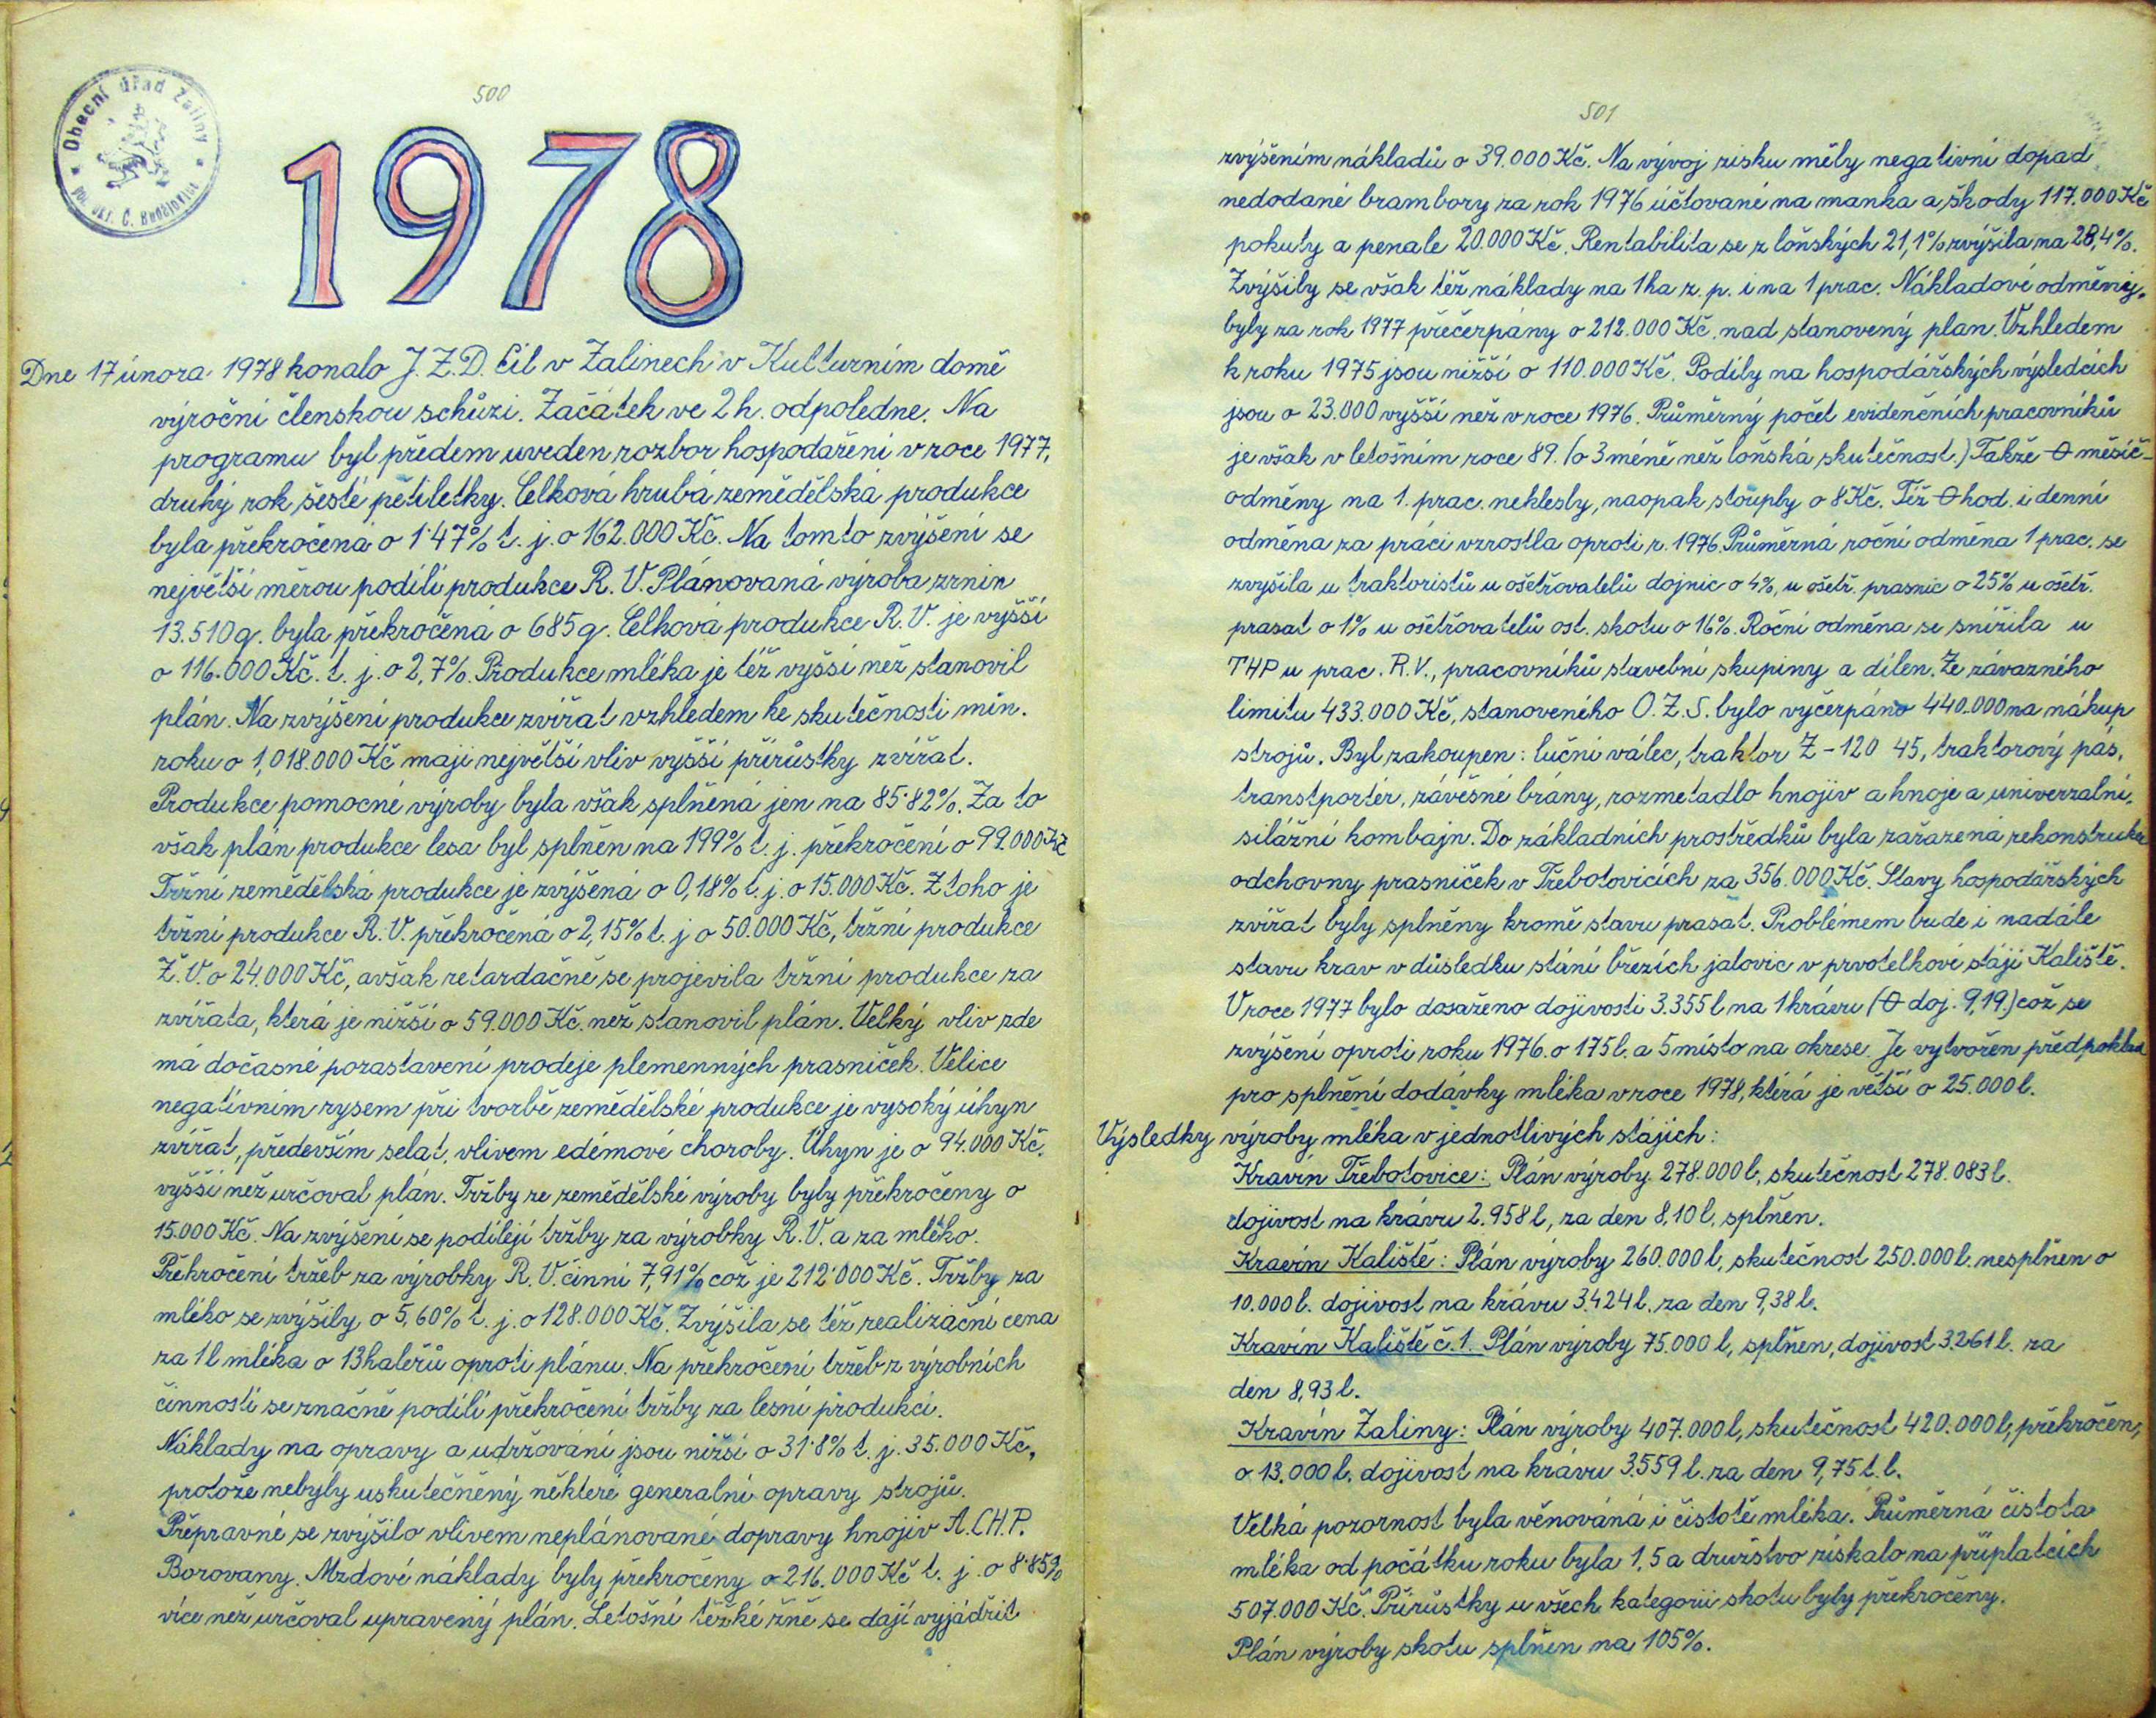 500
Obecní úřad Zaliny
pol. okr. Č. Budějovice
1978
Dne 17 února 1978 konalo J.Z.D. Cíl v Zalinech v Kulturním domě
výroční členskou schůzi. Začátek ve 2 h. odpoledne. Na
programu byl předem uveden rozbor hospodaření v roce 1977,
druhý rok šesté pětiletky. Celková hrubá zemědělská produkce
byla překročena o 1·47% t. j. o 162.000 Kč. Na tomto zvýšení se
největší měrou podílí produkce R. V. Plánovaná výroba zrnin
13.510 q. byla překročena o 685 q. Celková produkce R. V. je vyšší
o 116.000 Kč. t. j. o 2,7%. Produkce mléka je též vyšší než stanovil
plán. Na zvýšení produkce zvířat vzhledem ke skutečnosti min.
roku o 1,018.000 Kč mají největší vliv vyšší přírůstky zvířat.
Produkce pomocné výroby byla však splněná jen na 85·82%. Za to
však plán produkce lesa byl splněn na 199% t. j. překročení o 99.000 Kč
Tržní zemědělská produkce je zvýšená o 0,18% t. j. o 15.000 Kč. Z toho je
tržní produkce R. V. překročena o 2,15% t. j o 50.000 Kč, tržní produkce
Ž. V. o 24.000 Kč, avšak retardačně se projevila tržní produkce za
zvířata, která je nižší o 59.000 Kč. než stanovil plán. Velký vliv zde
má dočasné pozastavení prodeje plemenných prasniček. Velice
negativním rysem při tvorbě zemědělské produkce je vysoký úhyn
zvířat, především selat, vlivem edémové choroby. Úhyn je o 94.000 Kč.
vyšší než určoval plán. Tržby ze zemědělské výroby byly překročeny o
15.000 Kč. Na zvýšení se podílejí tržby za výrobky R. V. a za mléko.
Překročení tržeb za výrobky R. V. činní 7,91% což je 212·000 Kč. Tržby za
mléko se zvýšily o 5,60% t. j. o 128.000 Kč. Zvýšila se též realizační cena
za 1 l mléka o 13 haléřů oproti plánu. Na překročení tržeb z výrobních
činností se značně podílí překročení tržby za lesní produkci.
Náklady na opravy a udržování jsou nižší o 31·8% t. j. 35.000 Kč,
protože nebyly uskutečněny některé generalní opravy strojů.
Přepravné se zvýšilo vlivem neplánované dopravy hnojiv A.CH.P.
Borovany. Mzdové náklady byly překročeny o 216.000 Kč t. j. o 8·85%
více než určoval upravený plán. Letošní těžké žně se dají vyjádřit
501
zvýšením nákladů o 39.000 Kč. Na vývoj zisku měly negativní dopad
nedodané brambory za rok 1976 účtované na manka a škody 117.000 Kč
pokuty a penale 20.000 Kč. Rentabilita se z loňských 21,1% zvýšila na 28,4%.
Zvýšily se však též náklady na 1 ha z. p. i na 1 prac. Nákladové odměny.
byly za rok 1977 přečerpány o 212.000 Kč. nad stanovený plan. Vzhledem
k roku 1975 jsou nižší o 110.000 Kč. Podíly na hospodářských výsledcích
jsou o 23.000 vyšší než v roce 1976. Průměrný počet evidenčních pracovníků
je však v letošním roce 89. (o 3 méně než loňská skutečnost.) Takže Ø měsíč-
odměny na 1. prac. neklesly, naopak stouply o 8 Kč. Též Ø hod. i denní
odměna za práci vzrostla oproti r. 1976. Průměrná roční odměna 1 prac. se
zvýšila u traktoristů u ošetřovatelů dojnic o 4%, u ošetř. prasnic o 25% u ošetř.
prasat o 1% u ošetřovatelů ost. skotu o 16%. Roční odměna se snížila u
THP u prac. R.V., pracovníků stavební skupiny a dílen. Ze závazného
limitu 433.000 Kč, stanoveného O. Z. S. bylo vyčerpáno 440.000 na nákup
strojů. Byl zakoupen: luční válec, traktor Z - 120 45, traktorový pás.
transtportér, závěsné brány, rozmetadlo hnojiv a hnoje a univerzalní,
silážní kombajn. Do základních prostředků byla zařazena rekonstrukce
odchovny prasniček v Třebotovicích za 356.000 Kč. Stavy hospodářských
zvířat byly splněny kromě stavu prasat. Problémem bude i nadále
stavu krav v důsledku stání březích jalovic v prvotelkové stáji Kaliště.
V roce 1977 bylo dosaženo dojivosti 3.355 l na 1 krávu (Ø doj. 9,19.) což se
zvýšení oproti roku 1976. o 175 l. a 5 místo na okrese. Je vytvořen předpoklad
pro splnění dodávky mléka v roce 1978, která je větší o 25.000 l.
Výsledky výroby mléka v jednotlivých stájích:
Kravín Třebotovice: Plán výroby 278.000 l, skutečnost 278.083 l.
dojivost na krávu 2.958 l, za den 8,10 l, splněn.
Kravín Kaliště: Plán výroby 260.000 l, skutečnost 250.000 l. nesplněn o
10.000 l. dojivost na krávu 3.424 l. za den 9,38 l.
Kravín Kaliště č. 1. Plán výroby 75.000 l, splněn, dojivost 3.261 l. za
den 8,93 l.
Kravín Zaliny: Plán výroby 407.000 l, skutečnost 420.000 l, překročen,
o 13.000 l. dojivost na krávu 3.559 l. za den 9,75 l. l.
Velká pozornost byla věnována i čistotě mléka. Průměrná čistota
mléka od počátku roku byla 1,5 a družstvo získalo na příplatcích
507.000 Kč. Přírůstky u všech kategorií skotu byly překročeny.
Plán výroby skotu splněn na 105%.